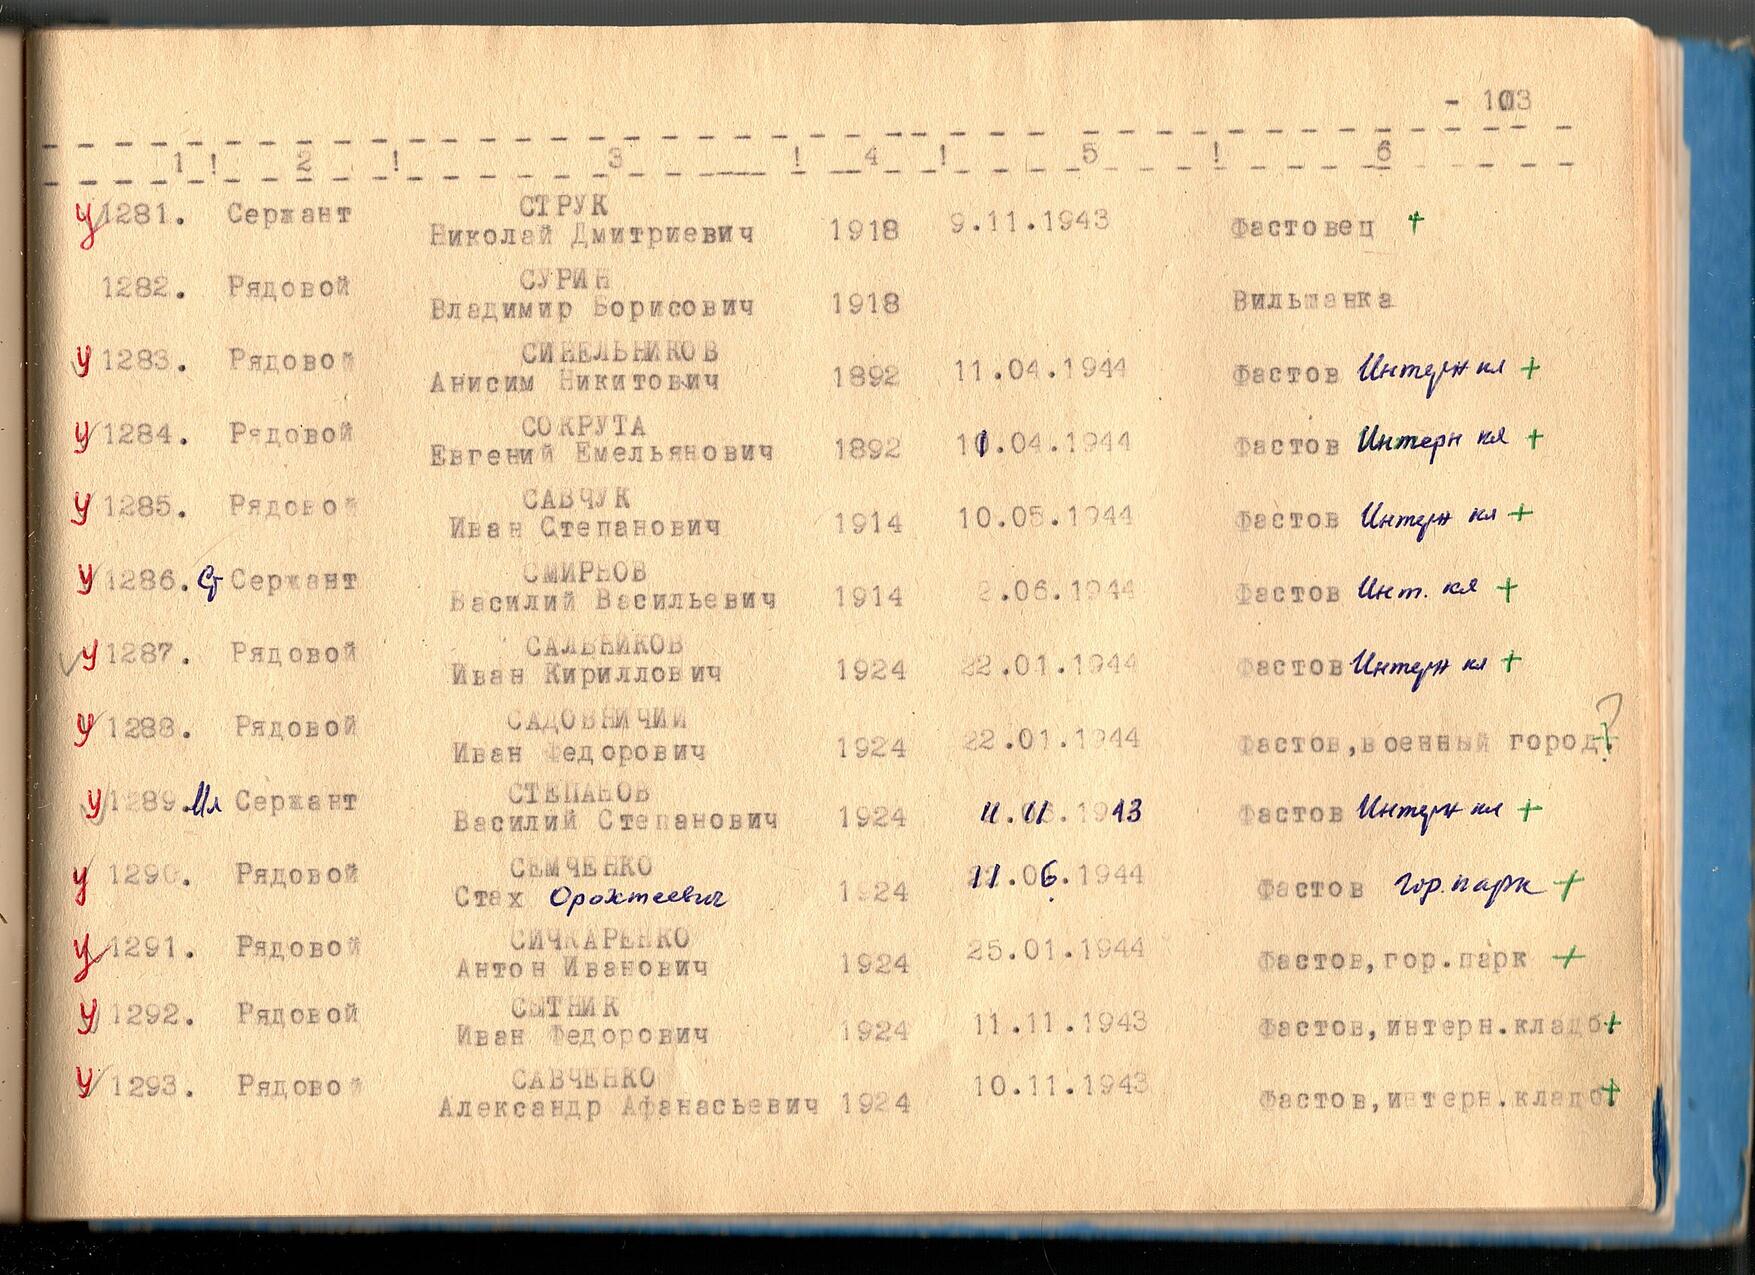 - 103
1 ! 2 ! 3 ! 4 ! 5 ! 6
У 1281. Сержант СТРУК
Николай Дмитриевич 1918 9.11.1943 Фастовец +
1282. Рядовой СУРИН
Владимир Борисович 1918 Вильшанка
У 1283. Рядовой СИНЕЛЬНИКОВ
Анисим Никитович 1892 11.04.1944 Фастов Интерн кл +
У 1284. Рядовой СОКРУТА
Евгений Емельянович 1892 10.04.1944 Фастов Интерн кл +
У 1285. Рядовой САВЧУК
Иван Степанович 1914 10.05.1944 Фастов Интерн кл +
У 1286. Ст Сержант СМИРНОВ
Василий Васильевич 1914 2.06.1944 Фастов Инт. кл +
У 1287. Рядовой САЛЬНИКОВ
Иван Кириллович 1924 22.01.1944 Фастов Интерн кл +
У 1288. Рядовой САДОВНИЧИЙ
Иван Федорович 1924 22.01.1944 Фастов,военный город
У 1289. Мл Сержант СТЕПАНОВ
Василий Степанович 1924 11.11.1943 Фастов Интерн кл +
У 1290. Рядовой СЕМЧЕНКО
Стах 1924 11.06.1944 Фастов гор.парк +
У 1291. Рядовой СИЧКАРЕНКО
Антон Иванович 1924 25.01.1944 Фастов,гор.парк +
У 1292. Рядовой СЫТНИК
Иван Федорович 1924 11.11.1943 Фастов,интерн.кладб. +
У 1293. Рядовой САВЧЕНКО
Александр Афанасьевич 1924 10.11.1943 Фастов,интерн.кладб. +